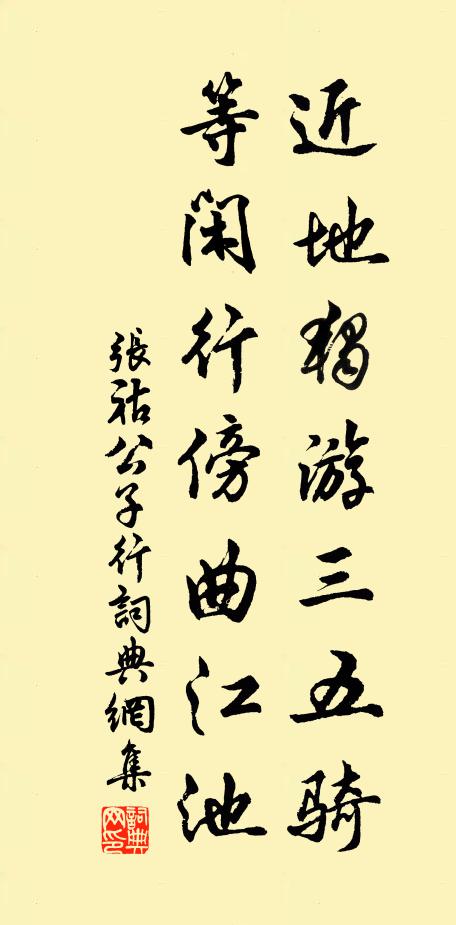 近地獨游三五騎
等閑行傍曲江池
張祜公子行詞典網集
詞典網印